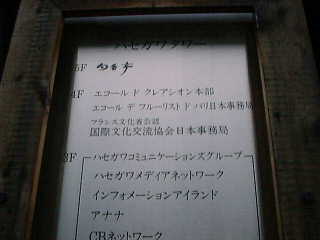 ハセガワタワー
5F
4F エコール ド クレアシオン本部
エコール デ フルーリスト ド パリ日本事務局
フランス文化省公認
国際文化交流協会日本事務局
3F ハセガワコミュニケーションズグループ
ハセガワメディアネットワーク
インフォメーションアイランド
アナナ
CBネットワーク